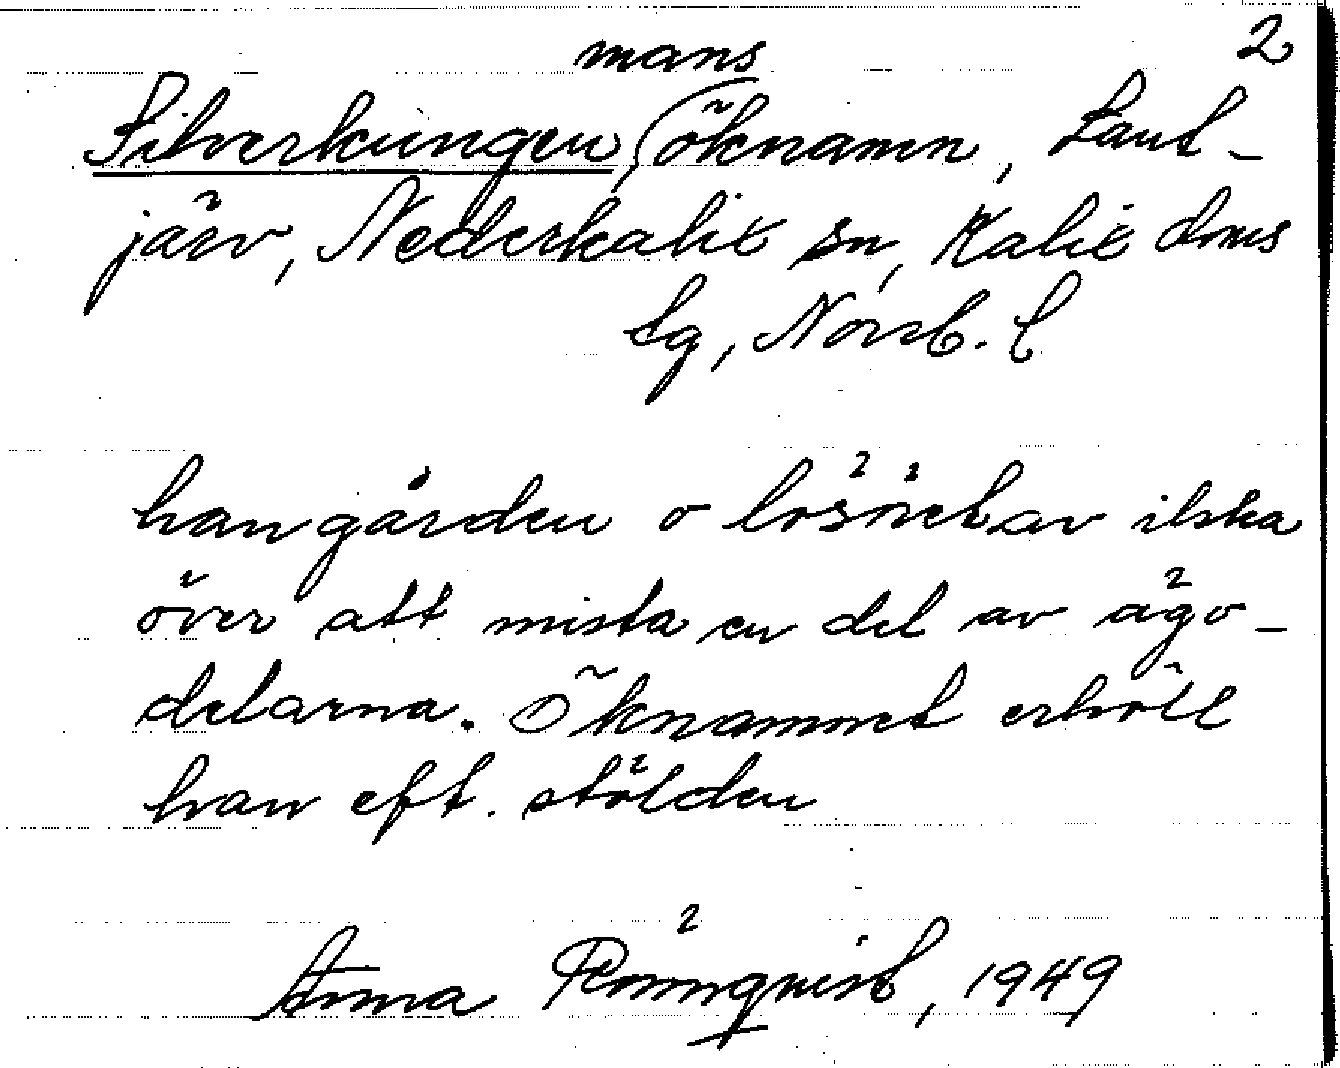 mans 2
Silverkungen, öknamn, Lant-
järv, Nederkalix sn, Kalix doms
lg, Norrb. l
han gården o lösöret av ilska
över att mista en del av ägo-
delarna. Öknamnet erhöll
han eft. stölden
Anna Rönnqvist, 1949